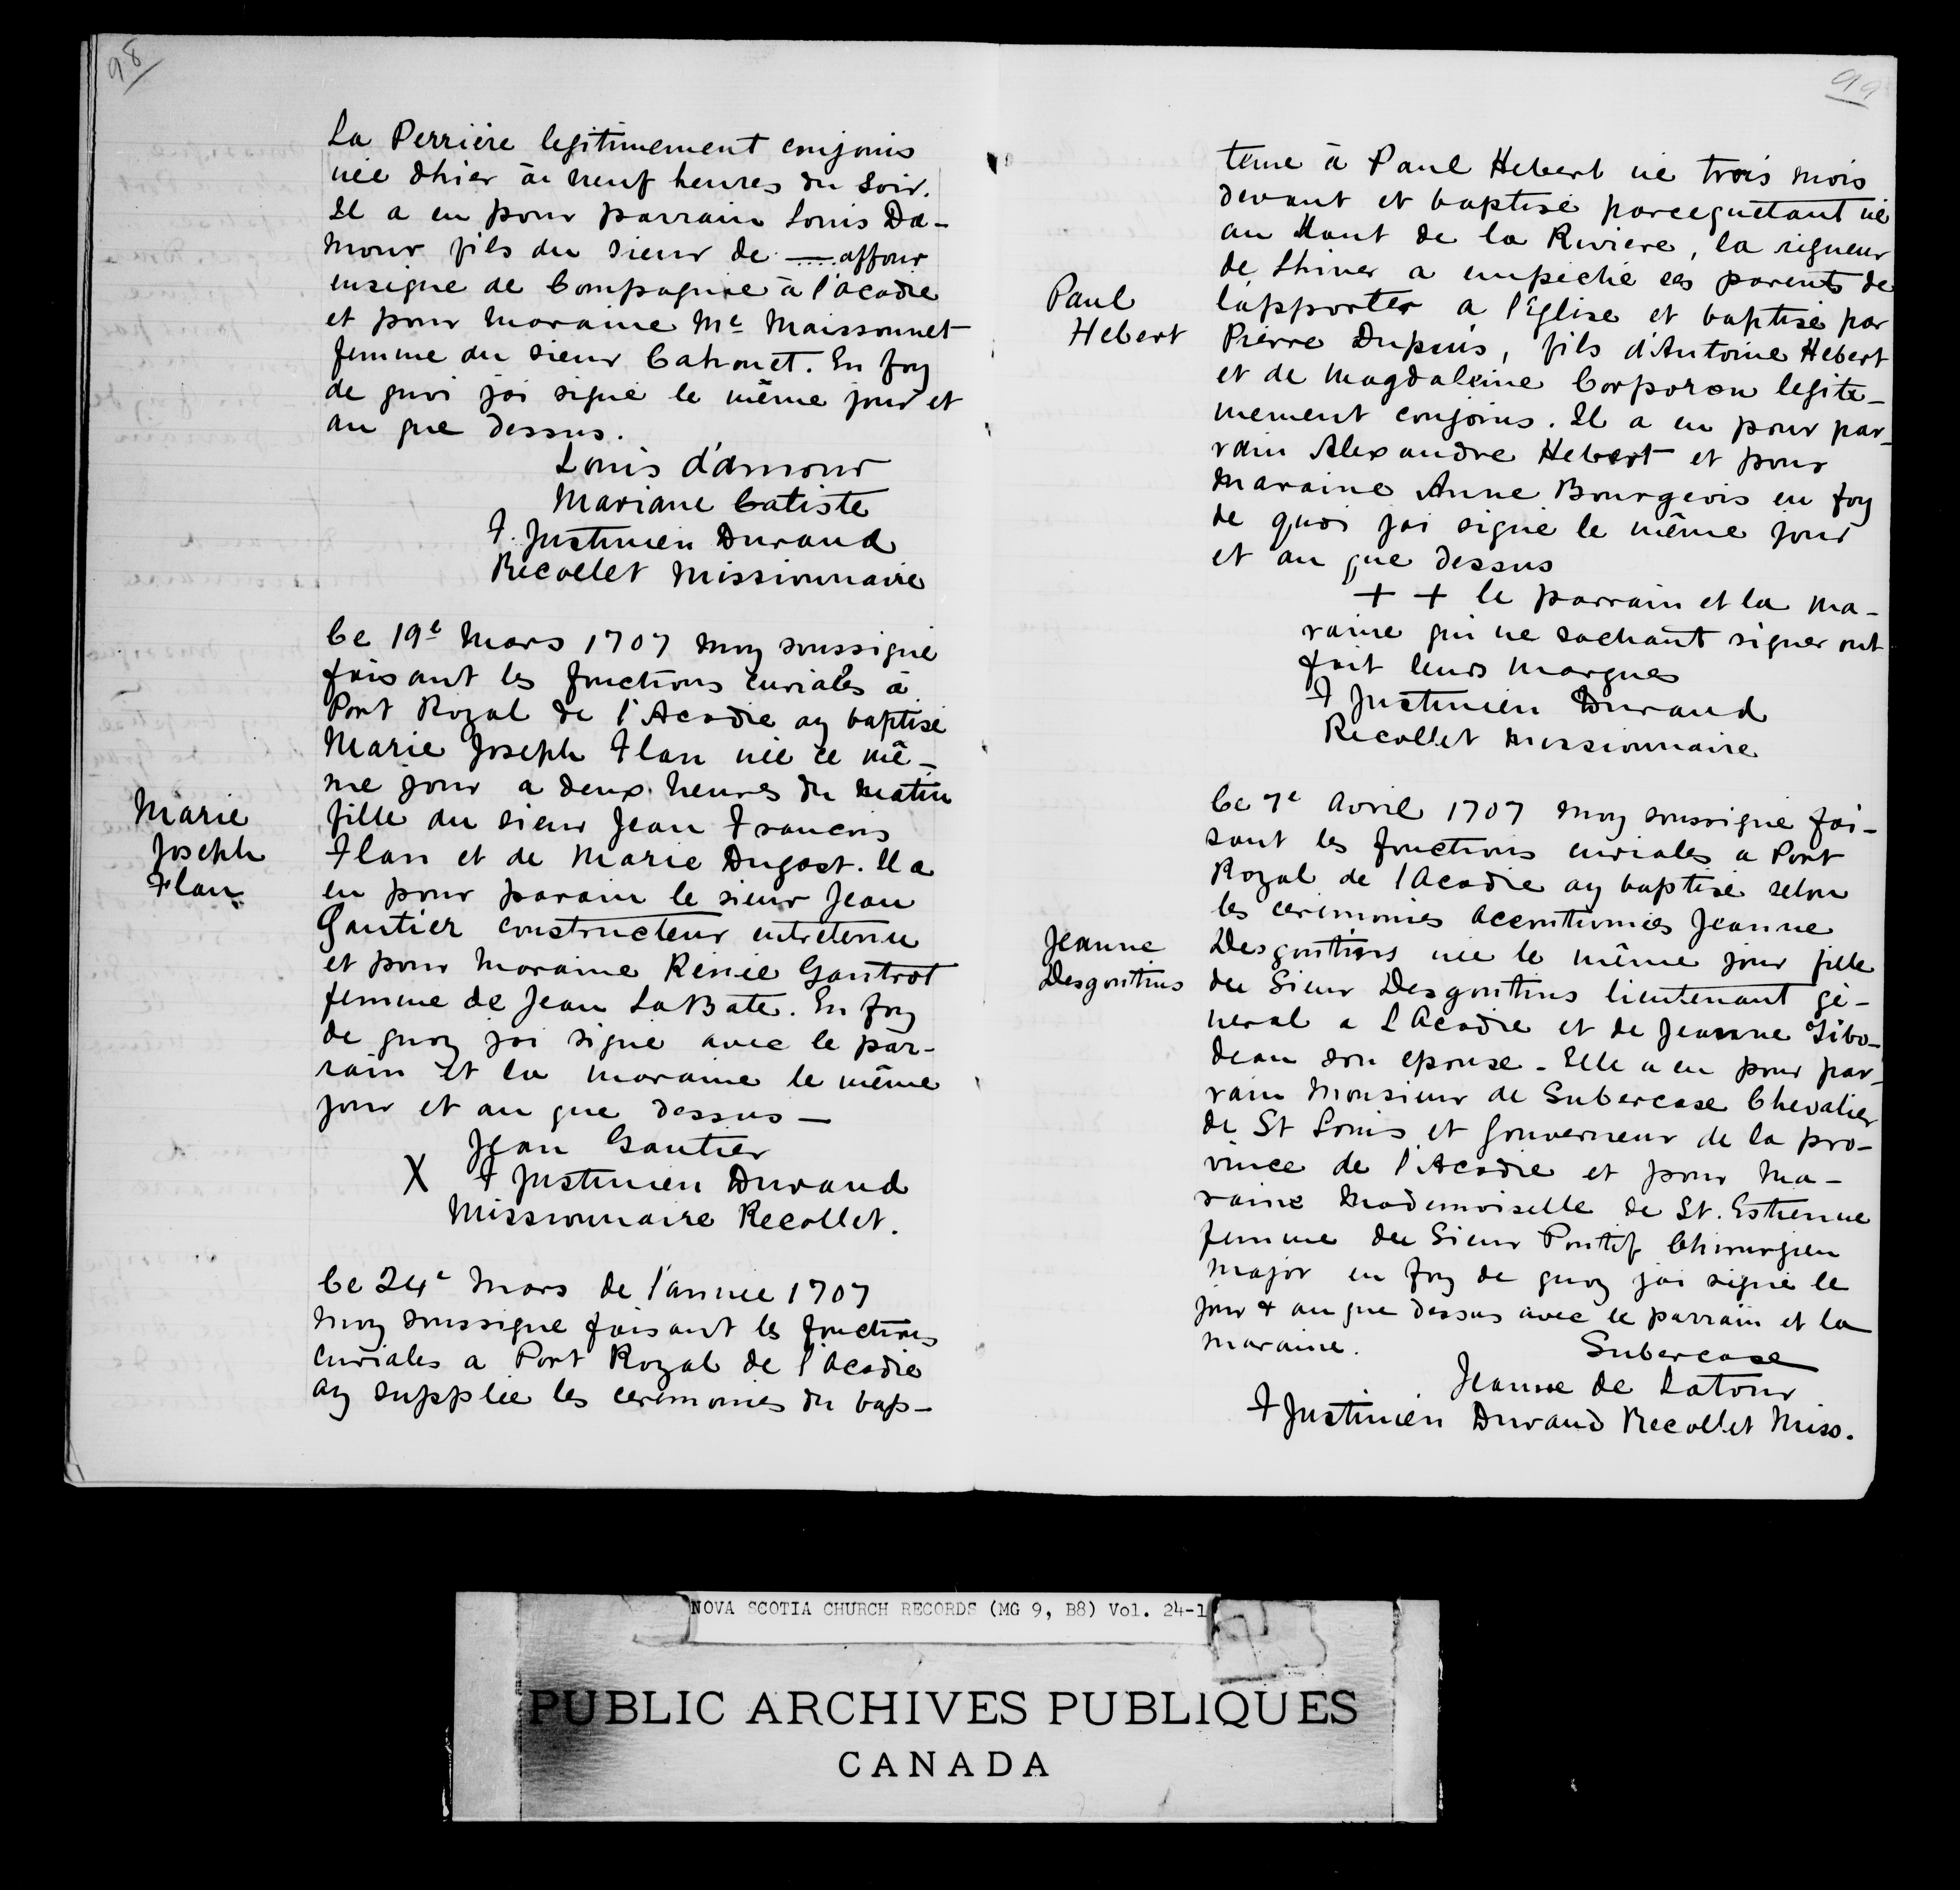 98
La Perrière legitimement conjoins
née d'hier à neuf heures du soir.
Il a eu pour parrain Louis Da-
mour fils du sieur de —....affour
ensigne de Compagnie à l'Acadie
et pour maraine Me Maissonnet
femme du sieur Cahouet. En foy
de quoi jai signé le même jour et
an que dessus.
Louis d'amour
Mariane Catiste
F. Justinien Durand
Recollet Missionnaire
Ce 19e Mars 1707 moy soussigné
faisant les fonctions curiales à
Port Royal de l'Acadie ay baptisé
Marie Joseph Flan née ce mê-
me jour a deux heures du matin
Marie
Joseph
Flan
fille du sieur Jean Francois
Flan et de Marie Dugast. Il a
eu pour parain le sieur Jean
Gautier constructeur entretenu
et pour maraine Rénée Gautrot
femme de Jean LaBate. En foy
de quoy jai signé avec le par-
rain et la maraine le même
jour et an que dessus —
Jean Gautier
X F Justinien Durand
Missionnaire Recollet.
Ce 24e Mars de l'année 1707
moy soussigné faisant les fonctions
curiales a Port Royal de l'Acadie
ay supplée les ceremonies du bap-
99
teme à Paul Hebert né trois mois
devant et baptisé parcequetant né
au Haut de la Riviere, la rigueur
de Lhiver a empeché ses parents de
Paul
Hebert
l'apporter a l'Église et baptisé par
Pierre Dupuis, fils d'Antoine Hebert
et de Magdaleine Corporon legite-
mement conjoins. Il a eu pour par-
rain Alexandre Hebert et pour
maraine Anne Bourgeois en foy
de quoi jai signé le même jour
et an que dessus
+ + le parrain et la ma-
raine qui ne sachant signer ont
fait leurs marques
F Justinien Durand
Recollet Missionnaire
Ce 7e Avril 1707 moy soussigné fai-
sant les fonctions curiales a Port
Royal de l'Acadie ay baptisé selon
les ceremonies accoutumées Jeanne
Jeanne
Desgoutins
Desgoutins née le même jour fille
du Sieur Desgoutins lieutenant gé-
neral a L'Acadie et de Jeanne Tibo-
deau son epouse - Elle a eu pour par-
rain Monsieur de Subercase Chevalier
de St Louis et Gouverneur de la pro-
vince de l'Acadie et pour ma-
raine Mademoiselle de St. Estienne
femme du Sieur Pontif Chirurgien
major en foy de quoy jai signé le
jour & an que dessus avec le parrain et la
maraine.
Subercase
Jeanne de Latour
F Justinien Durand Recollet Miss.
NOVA SCOTIA CHURCH RECORDS (MG 9, B8) Vol. 24-1
PUBLIC ARCHIVES PUBLIQUES
CANADA